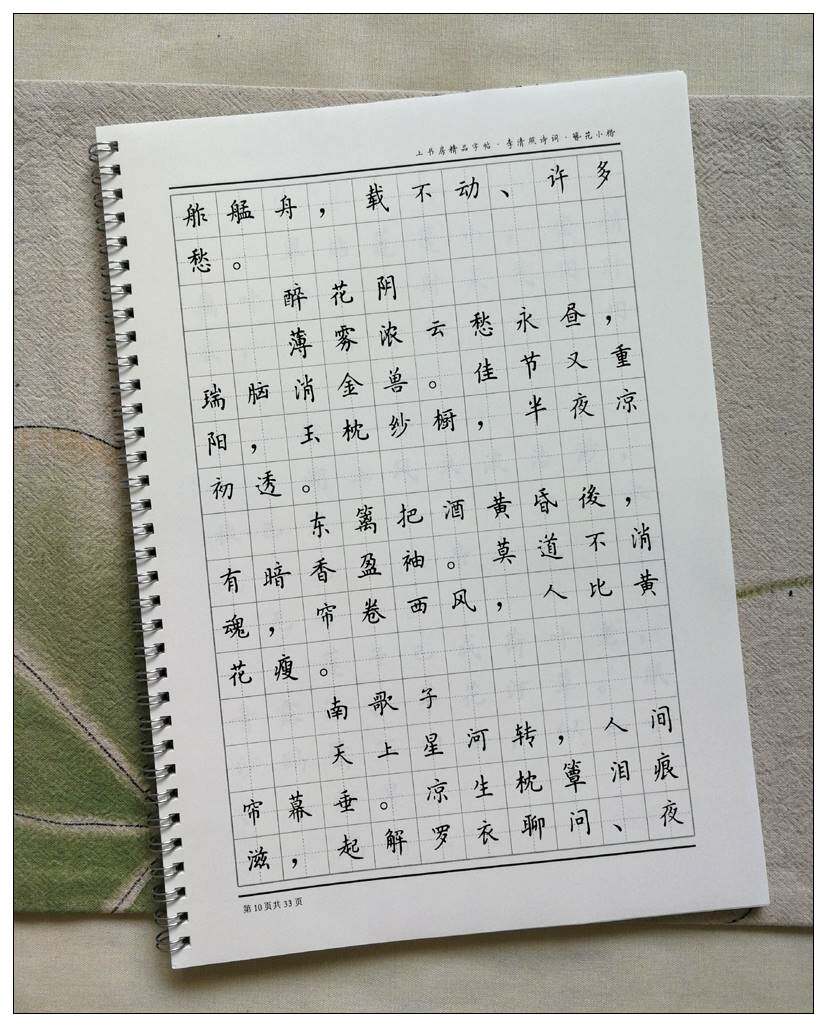 上书房精品字帖·李清照诗词·簪花小楷
舴艋舟，载不动、许多
愁。
醉花阴
薄雾浓云愁永昼，
瑞脑消金兽。佳节又重
阳，玉枕纱橱，半夜凉
初透。
东篱把酒黄昏後，
有暗香盈袖。莫道不消
魂，帘卷西风，人比黄
花瘦。
南歌子
天上星河转，人间
帘幕垂。凉生枕簟泪痕
滋，起解罗衣聊问、夜
第10页共33页